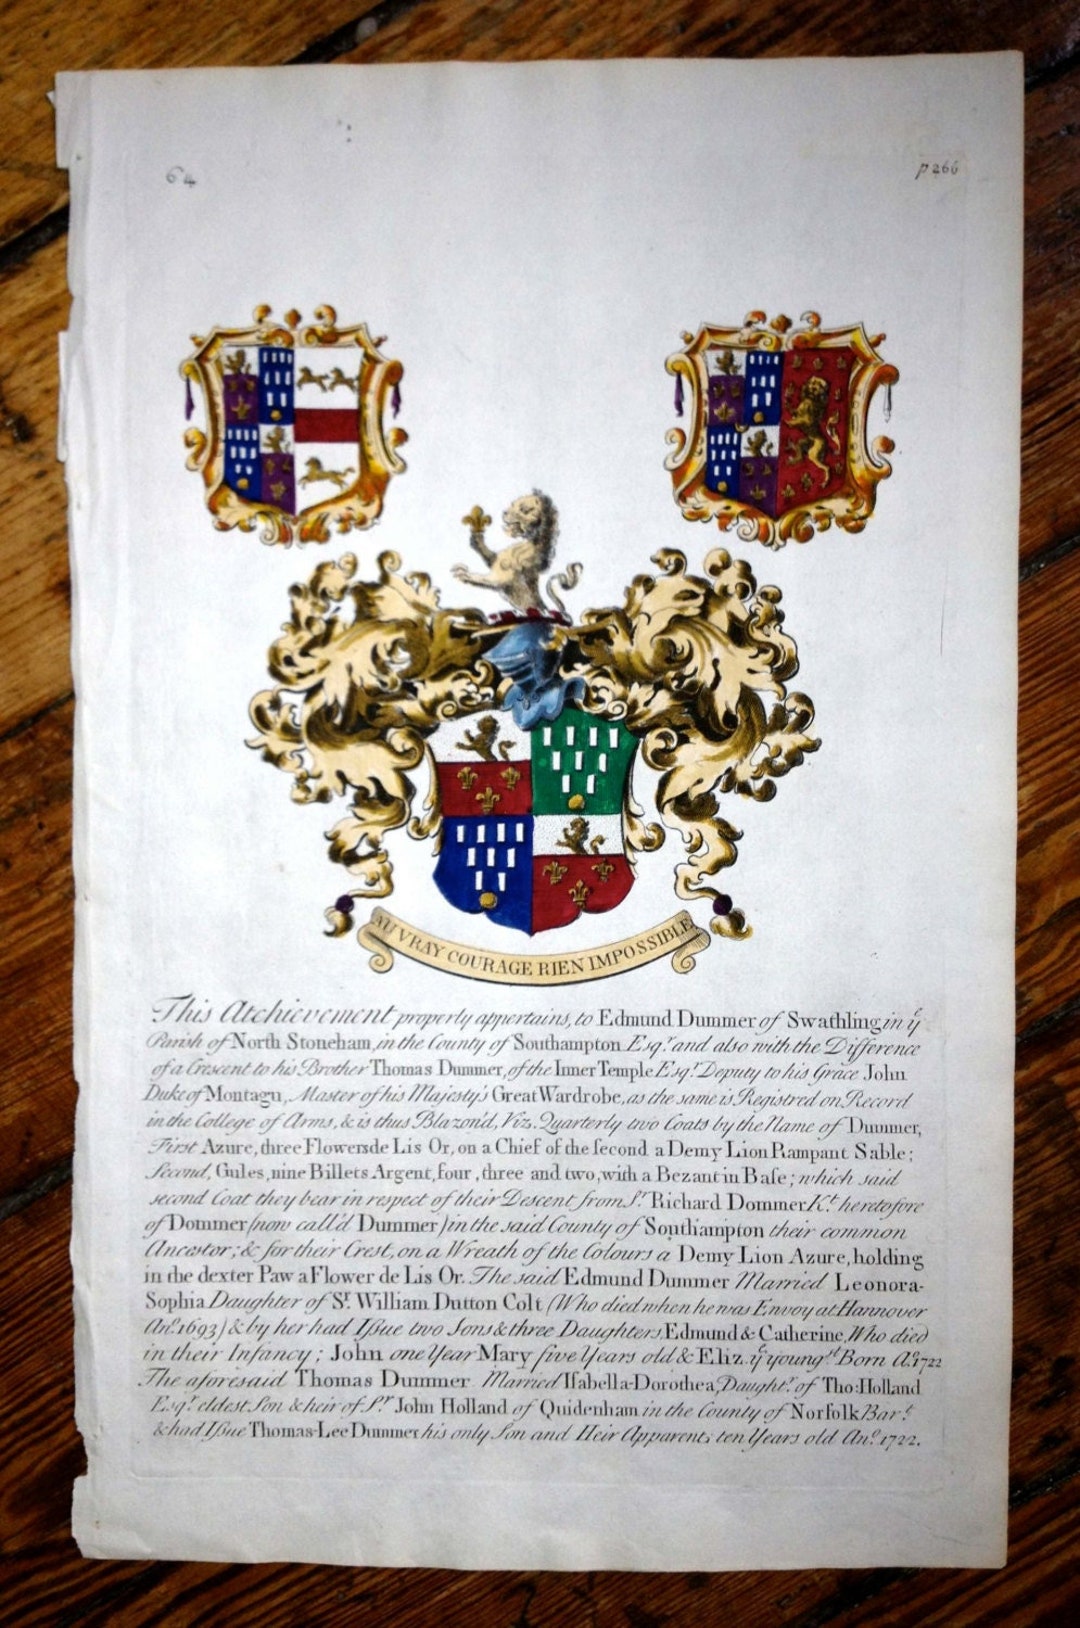 64
p 266
AU VRAY COURAGE RIEN IMPOSSIBLE
This Atchievement properly appertains, to Edmund Dummer of Swathling in yͤ
Parish of North Stoneham, in the County of Southampton Esqʳ and also with the Difference
of a Crescent to his Brother Thomas Dummer, of the Inner Temple Esqʳ Deputy to his Grace John
Duke of Montagu, Master of his Majesty's Great Wardrobe, as the same is Registred on Record
in the College of Arms, & is thus Blazon'd, Viz. Quarterly two Coats by the Name of Dummer,
First Azure, three Flowers de Lis Or, on a Chief of the second a Demy Lion Rampant Sable;
Second, Gules, nine Billets Argent, four, three and two, with a Bezant in Base; which said
second Coat they bear in respect of their Descent from Sʳ Richard Dommer Kᵗ heretofore
of Dommer (now call'd Dummer) in the said County of Southampton their common
Ancestor; & for their Crest, on a Wreath of the Colours a Demy Lion Azure, holding
in the dexter Paw a Flower de Lis Or. The said Edmund Dummer Married Leonora-
Sophia Daughter of Sʳ William Dutton Colt (Who died when he was Envoy at Hannover
Anº 1693) & by her had Issue two Sons & three Daughters, Edmund & Catherine, Who died
in their Infancy; John one Year Mary five Years old & Eliz. yͤ youngˢᵗ Born Aº 1722
The aforesaid Thomas Dummer Married Isabella-Dorothea, Daughtʳ of Tho: Holland
Esqʳ eldest Son & heir of Sʳ John Holland of Quidenham in the County of Norfolk Barᵗ
& had Issue Thomas-Lee Dummer his only Son and Heir Apparent, ten Years old Anº 1722.